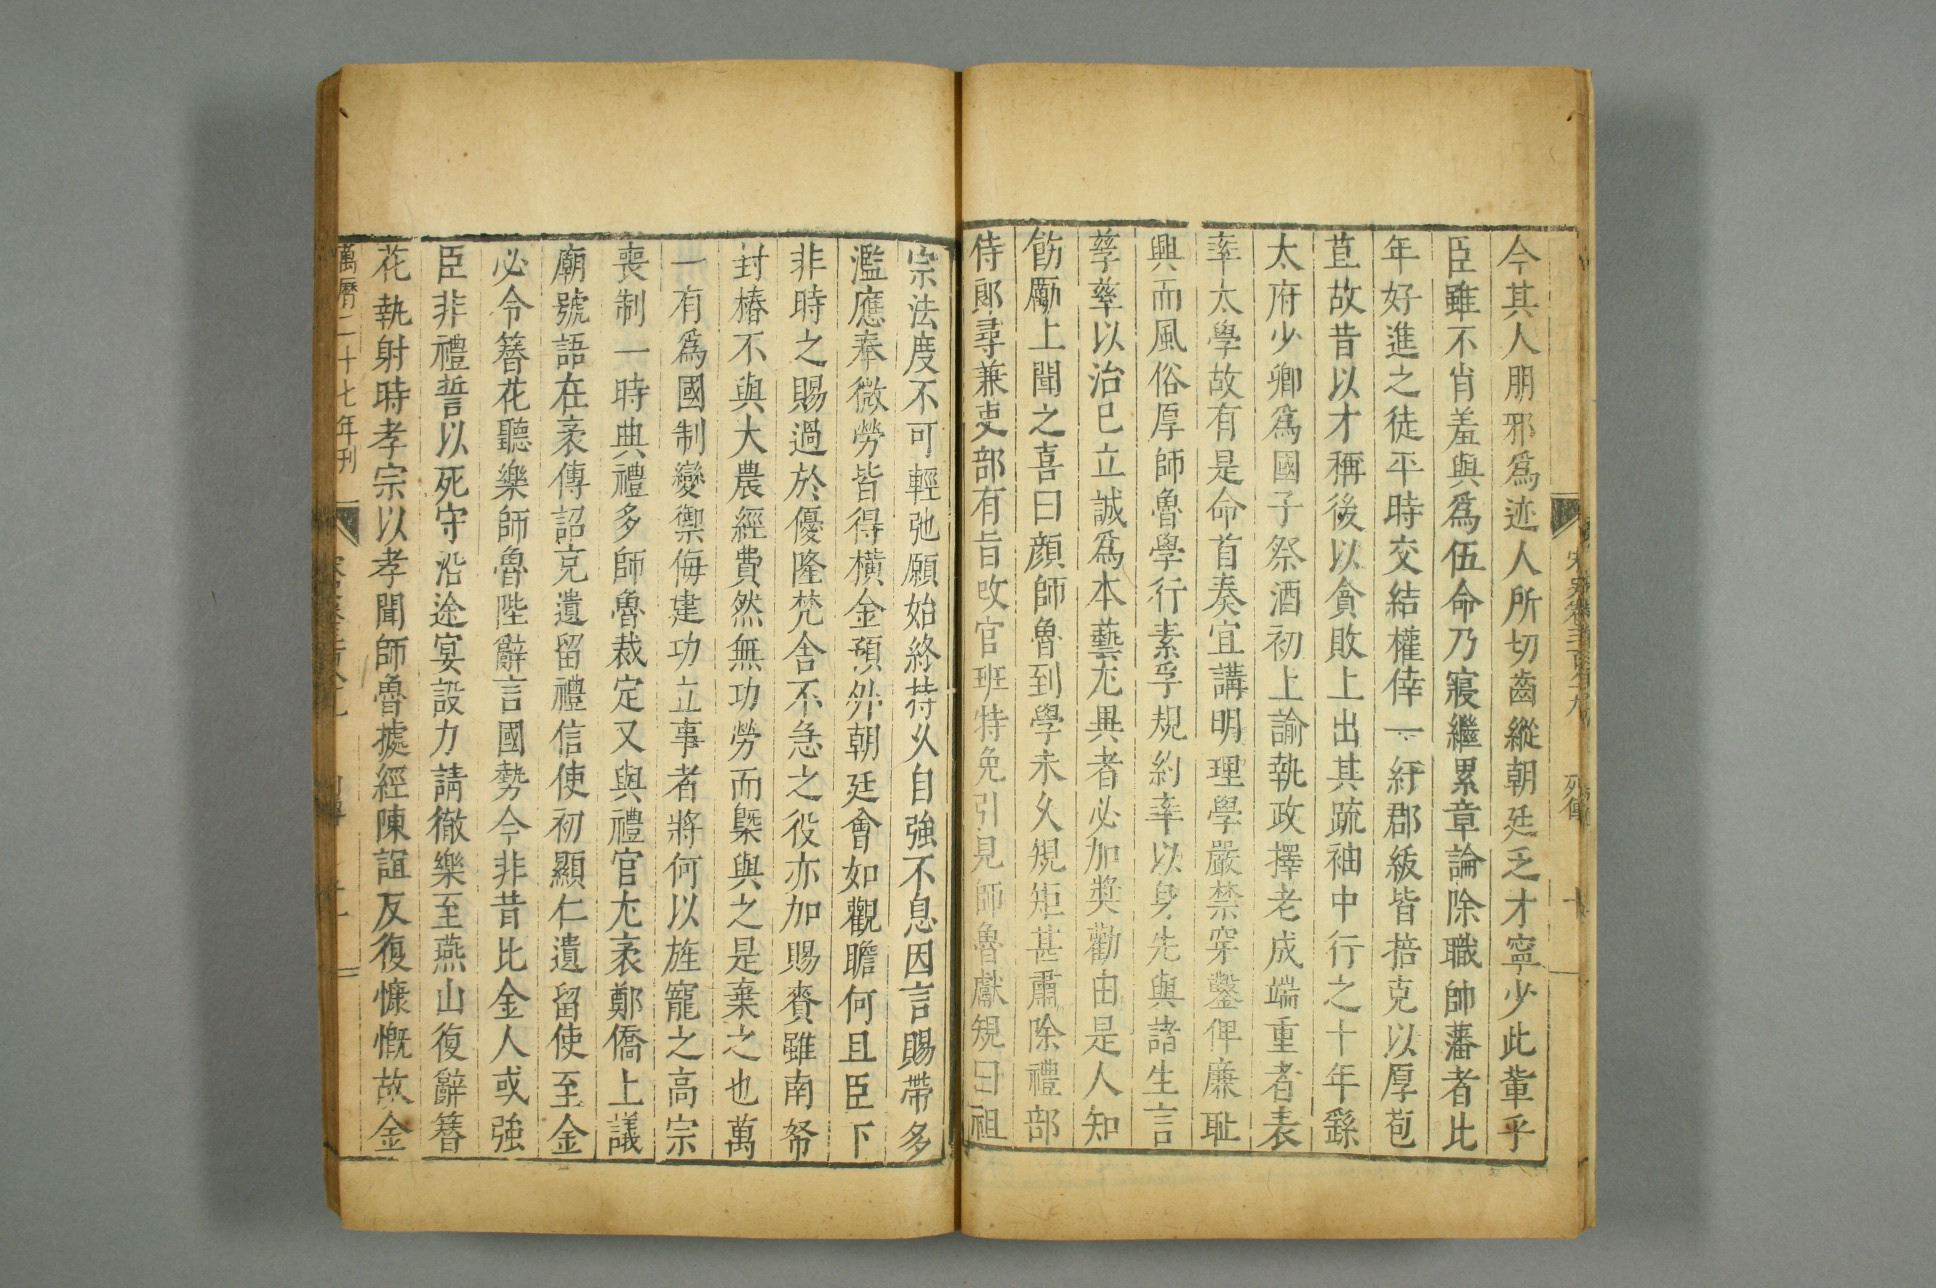 今其人朋邪爲迹人所切齒縱朝廷乏才寧少此軰乎
臣雖不肖羞與爲伍命乃寢繼累章論除職帥藩者比
年好進之徒平時交結權倖一紆郡紱皆掊克以厚苞
苴故昔以才稱後以貪敗上出其疏袖中行之十年繇
太府少卿爲國子祭酒初上諭執政擇老成端重者表
率太學故有是命首奏宜講明理學嚴禁穿鑿俾廉耻
興而風俗厚師魯學行素孚規約率以身先與諸生言
孳孳以治已立誠爲本藝尤異者必加奬勸由是人知
飭厲上聞之喜曰顔師魯到學未乆䂓矩甚肅除禮部
侍郎尋兼吏部有旨改官班特免引見師魯獻䂓曰祖
宗法度不可輕弛願始終持乆自強不息因言賜帶多
濫應奉微勞皆得橫金預外朝廷會如觀瞻何且臣下
非時之賜過於優隆梵舍不急之役亦加賜賚雖南帑
封樁不與大農經費然無功勞而槩與之是棄之也萬
一有爲國制變禦侮建功立事者將何以旌寵之高宗
喪制一時典禮多師魯裁定又與禮官尤袤鄭僑上議
廟號語在袤傳詔充遺留禮信使初顯仁遺留使至金
必令簪花聽樂師魯陛辭言國勢今非昔比金人或強
臣非禮誓以死守沿途宴設力請徹樂至燕山復辭簪
花執射時孝宗以孝聞師魯據經陳誼反復慷慨故金
萬曆二十七年刊
宋史卷三百八十九
列傳